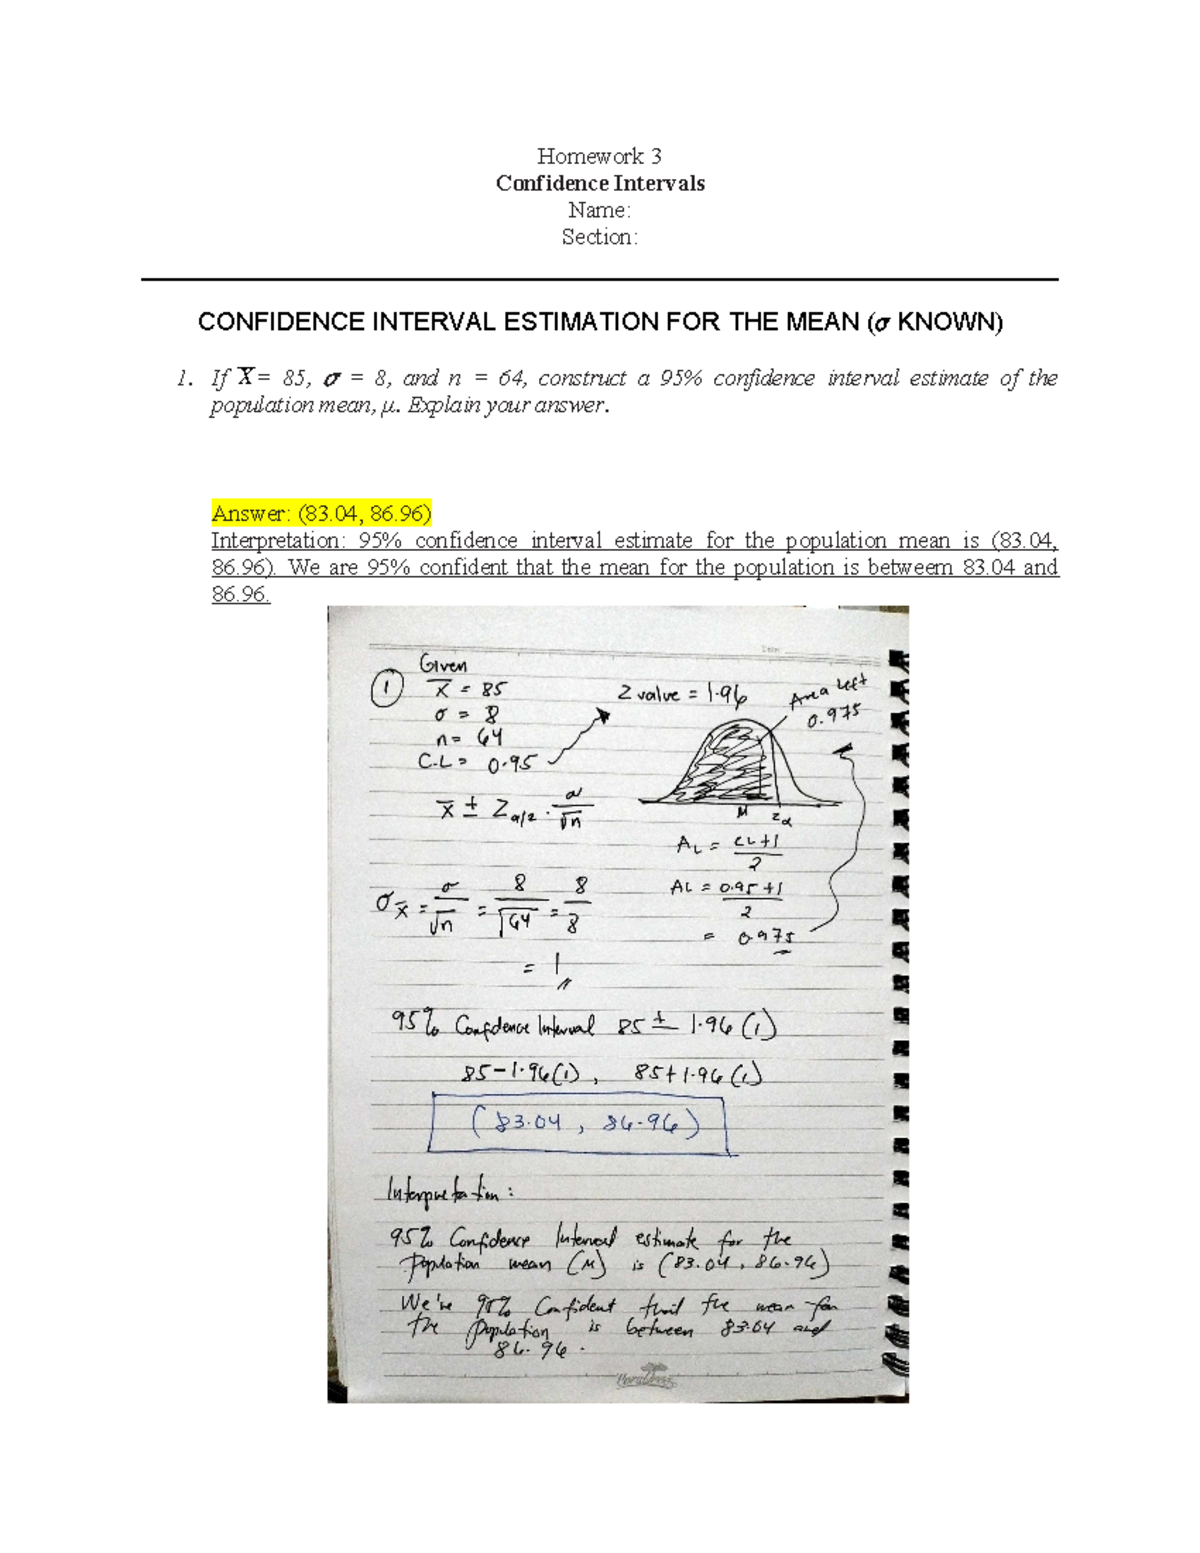 Homework 3
Confidence Intervals
Name:
Section:
CONFIDENCE INTERVAL ESTIMATION FOR THE MEAN (σ KNOWN)
1. If X̅ = 85, σ = 8, and n = 64, construct a 95% confidence interval estimate of the
population mean, μ. Explain your answer.
Answer: (83.04, 86.96)
Interpretation: 95% confidence interval estimate for the population mean is (83.04,
86.96). We are 95% confident that the mean for the population is betweem 83.04 and
86.96.
Given
1
x̅ = 85
σ = 8
n = 64
C.L = 0.95
Z value = 1.96
Area left
0.975
x̅ ± Z α/2 · σ/√n
M Zα
AL = CL+1 / 2
AL = 0.95+1 / 2
= 0.975
σx̅ = σ/√n = 8/√64 = 8/8
= 1
95% Confidence Interval 85 ± 1.96 (1)
85-1.96(1), 85+1.96(1)
(83.04, 86.96)
Interpretation:
95% Confidence Interval estimate for the
Population mean (M) is (83.04, 86.96)
We're 95% Confident that the mean for
the population is between 83.04 and
86.96.